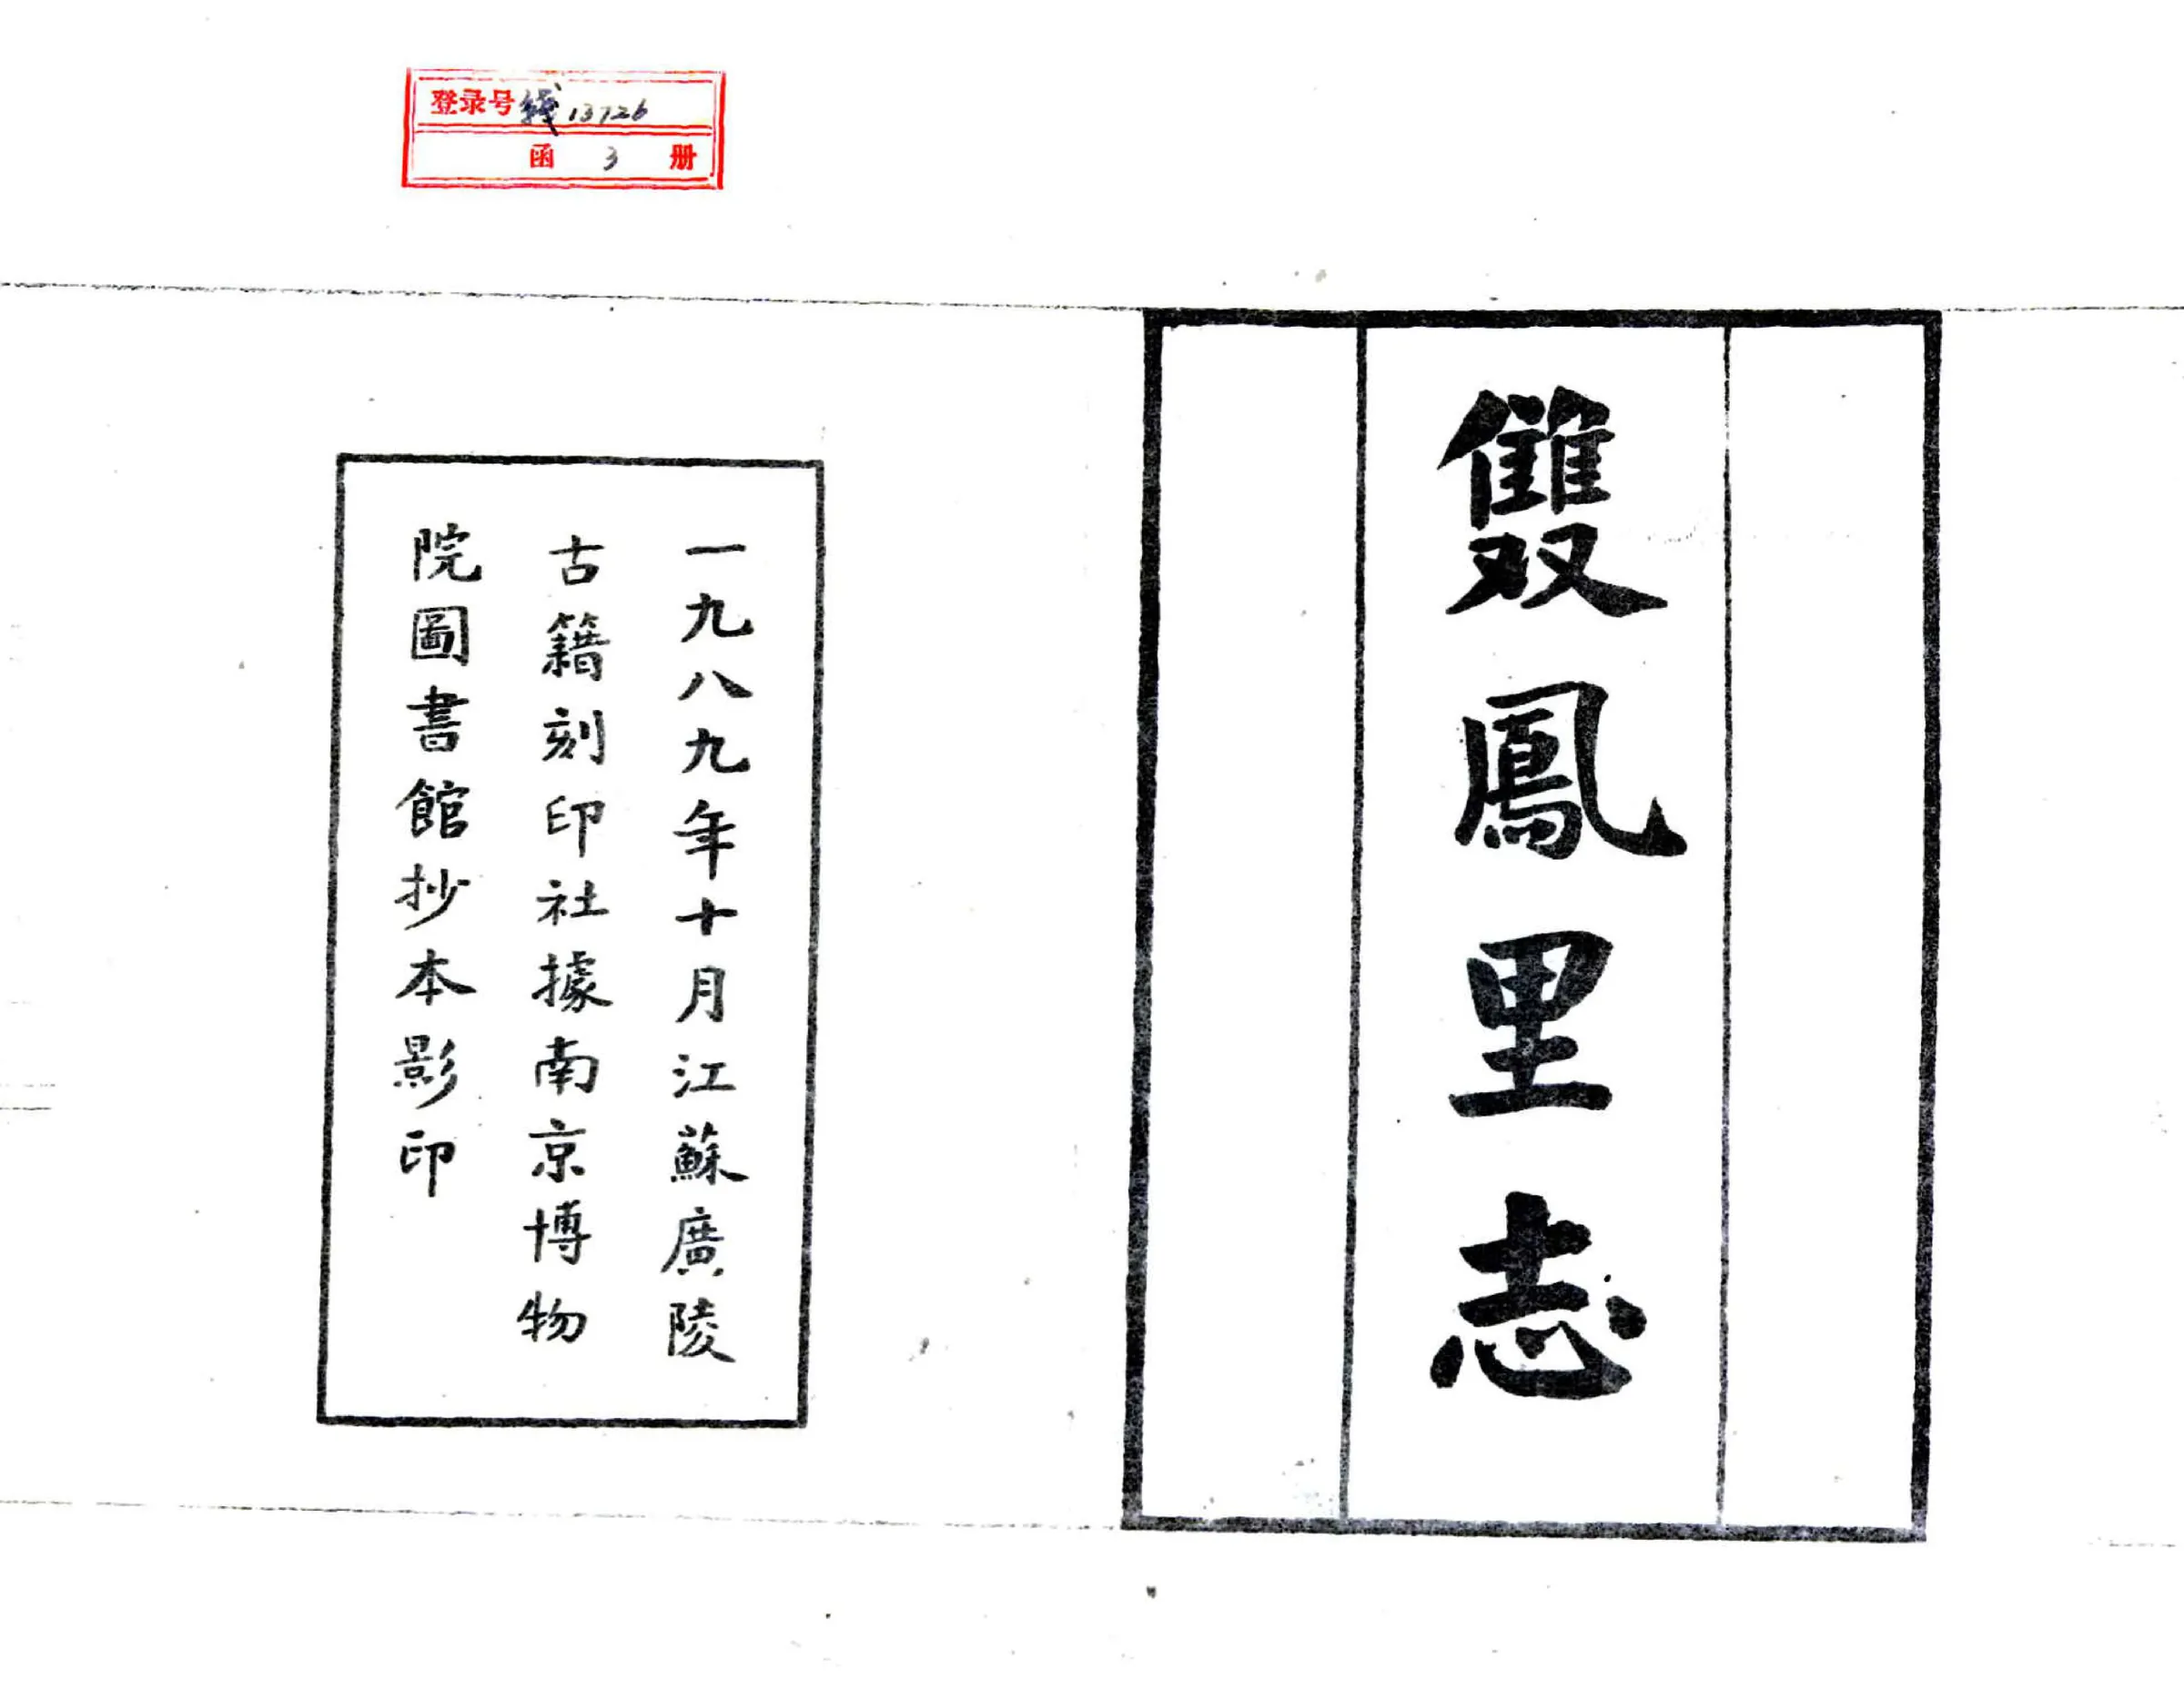 登录号线13726
函 3 册
雙鳳里志
一九八九年十月江蘇廣陵
古籍刻印社據南京博物
院圖書館抄本影印